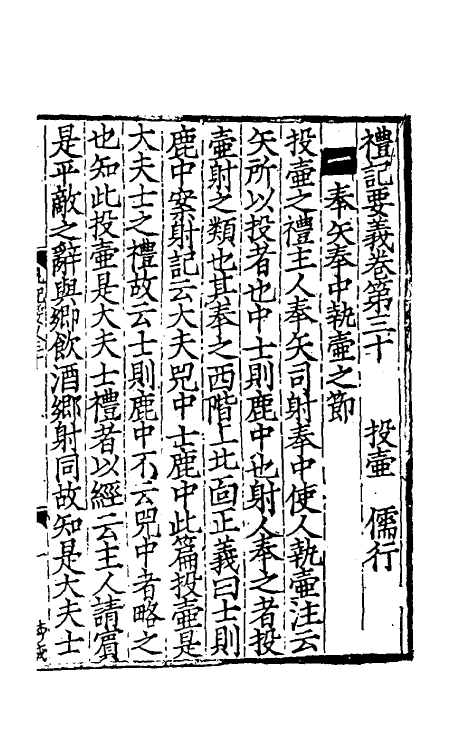 禮記要義卷第三十　投壷　儒行
一　奉矢奉中執壷之節
投壷之禮主人奉矢司射奉中使人執壷注云
矢所以投者也中士則鹿中也射人奉之者投
壷射之類也其奉之西階上北面正義曰士則
鹿中案射記云大夫兕中士鹿中此篇投壷是
大夫士之禮故云士則鹿中不云兕中者略之
也知此投壷是大夫士禮者以經云主人請賔
是平敵之辭與鄉飲酒鄉射同故知是大夫士